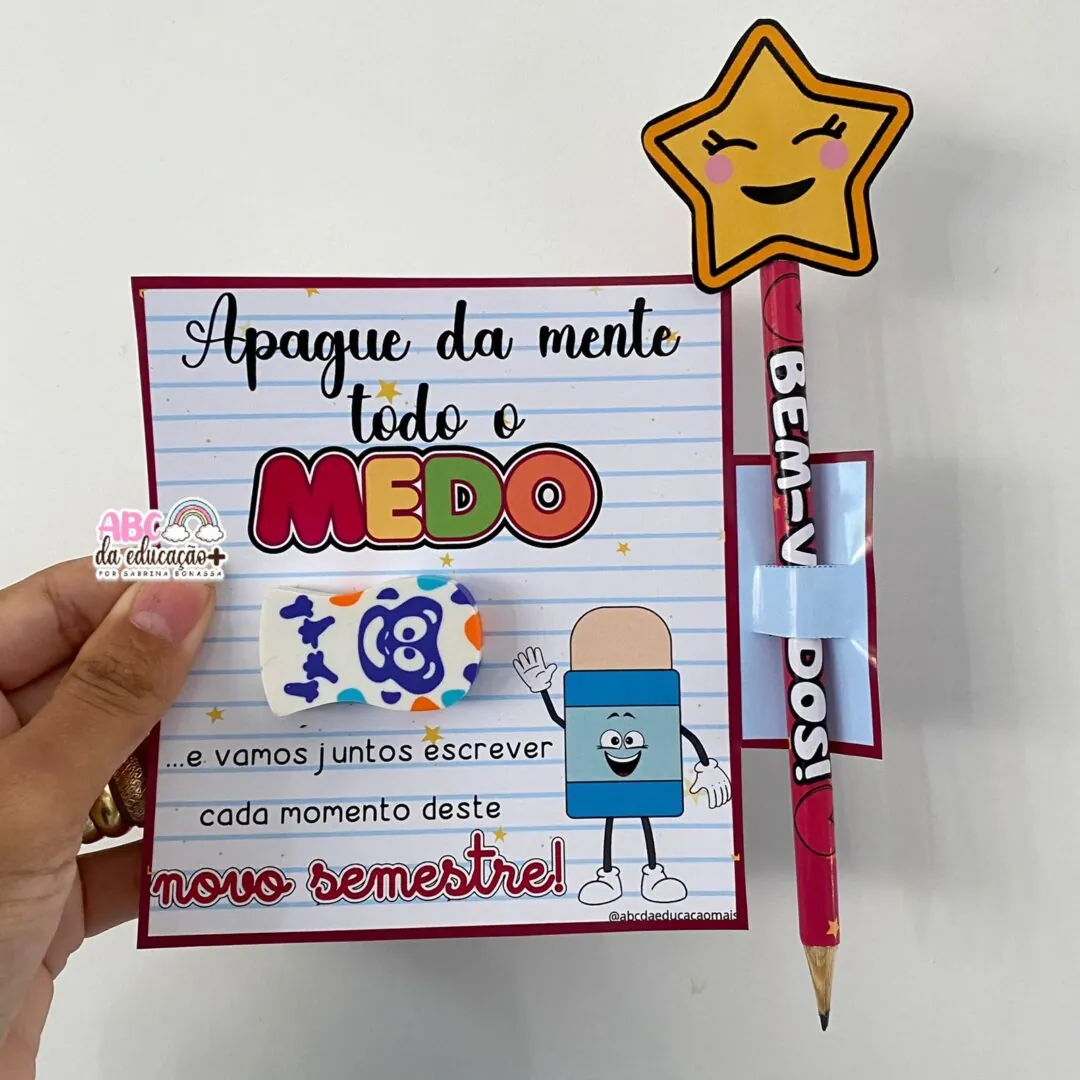 Apague da mente
todo o
MEDO
...e vamos juntos escrever
cada momento deste
novo semestre!
@abcdaeducacaomais
BEM-V DOS!
ABC
da educação+
POR SABRINA BONASSA